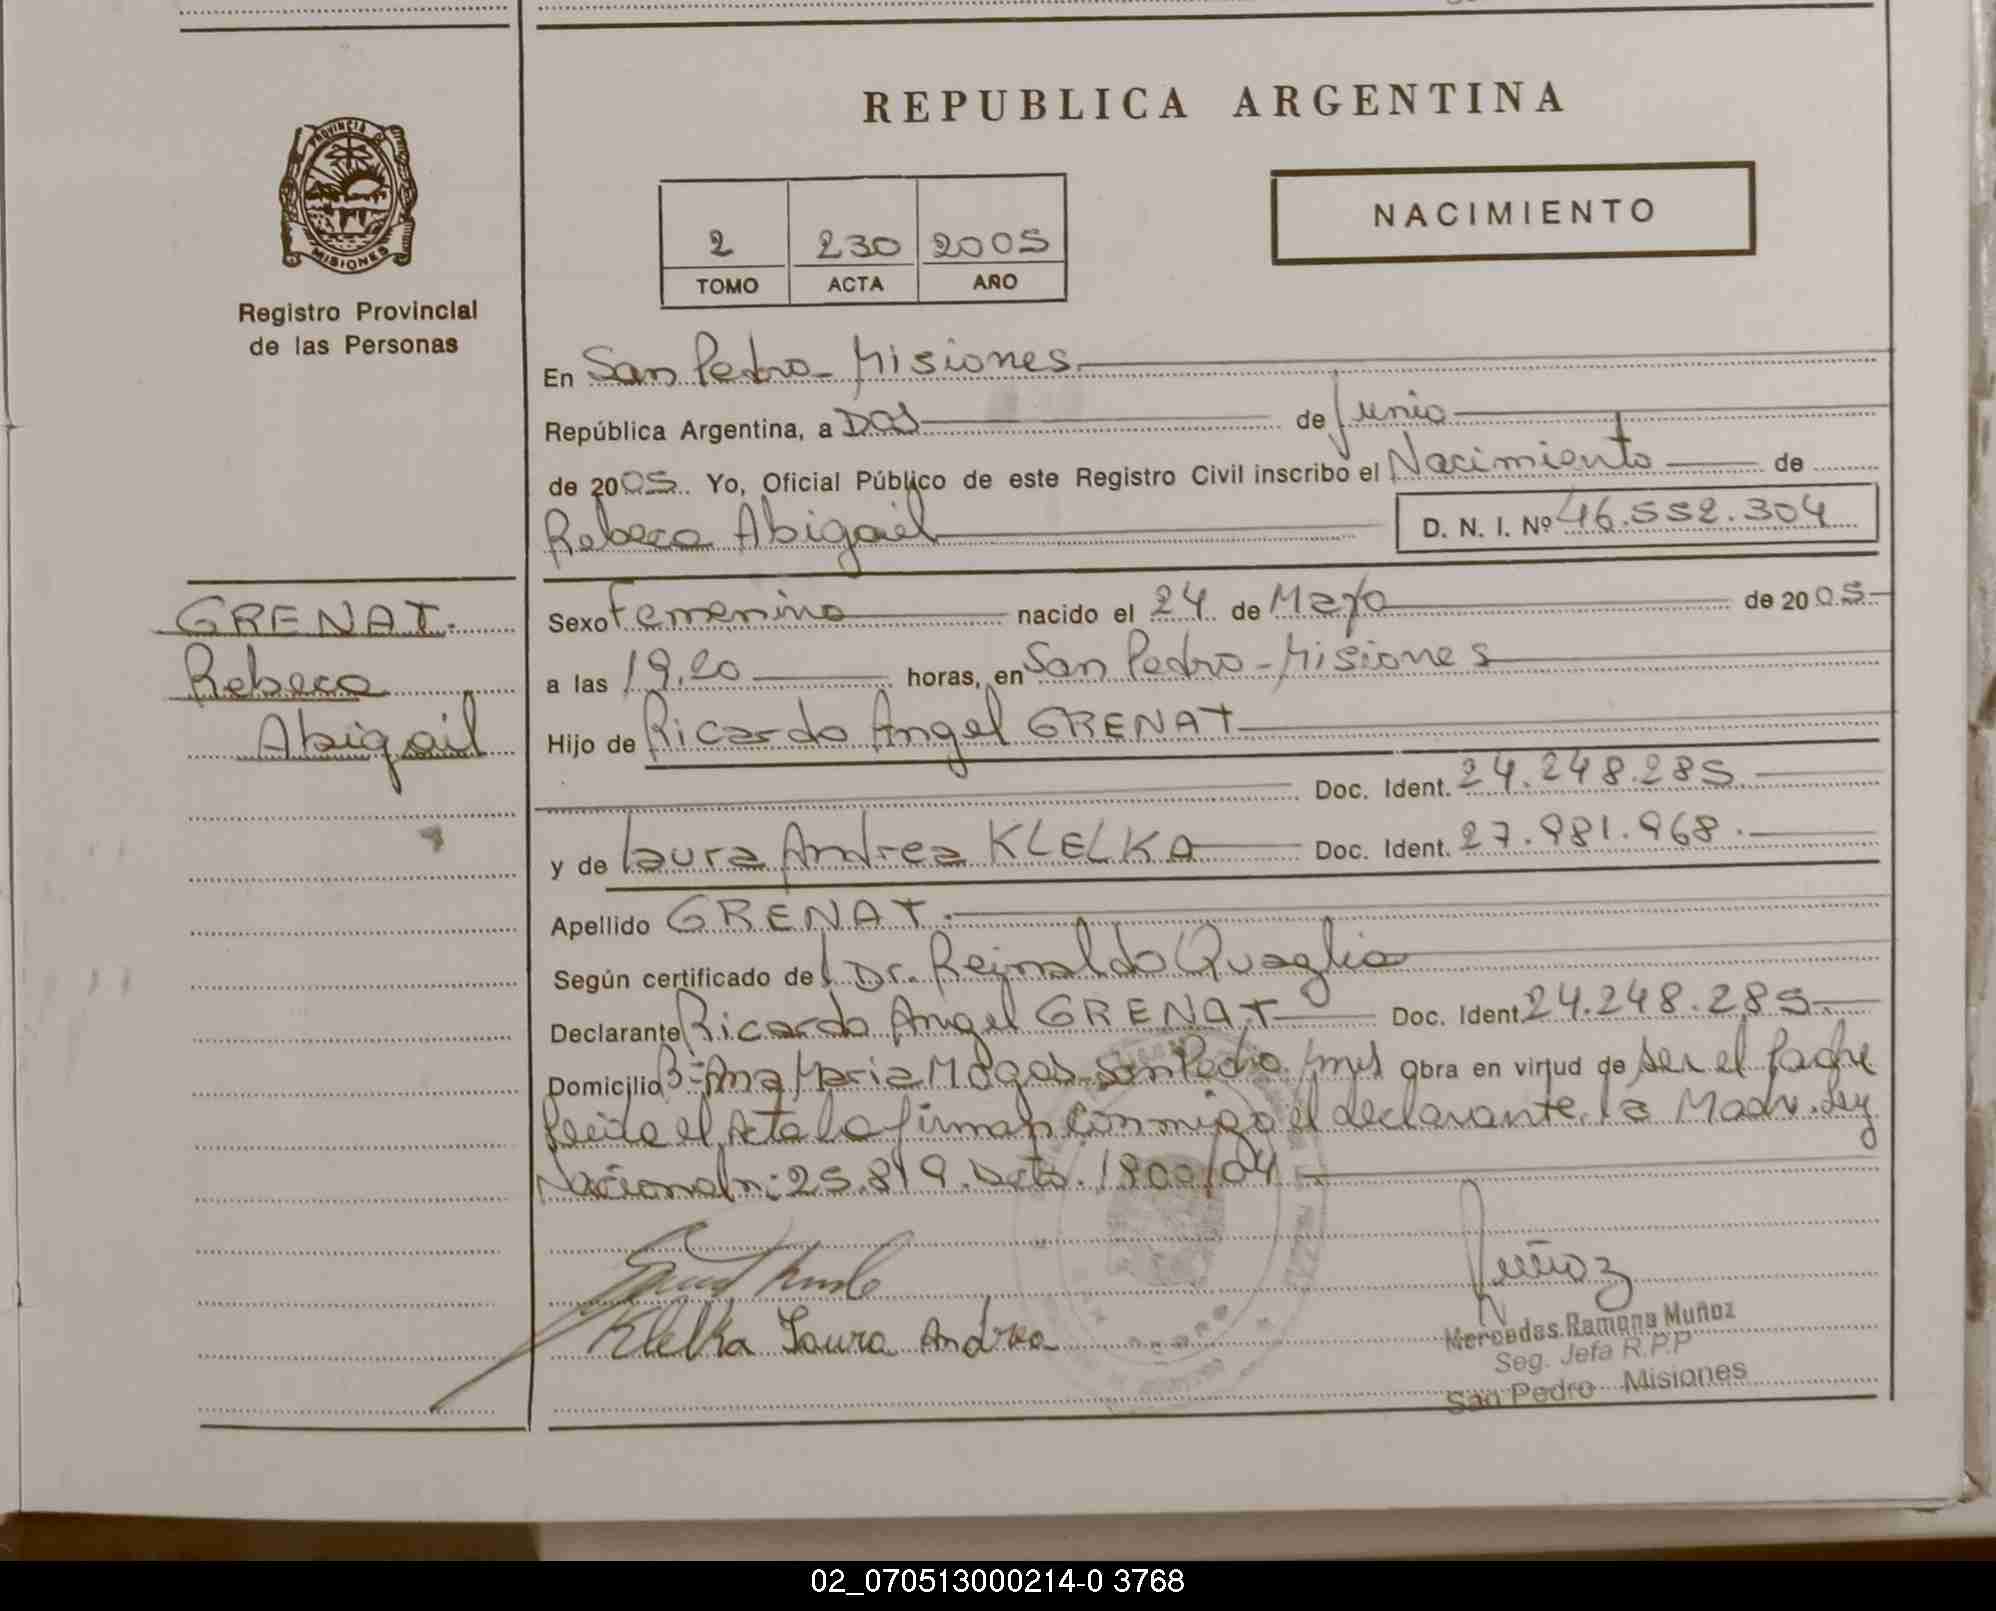 REPUBLICA ARGENTINA
PROVINCIA DE
MISIONES
Registro Provincial
de las Personas
NACIMIENTO
2 230 2005
TOMO ACTA AÑO
En San Pedro - Misiones
República Argentina, a Dos de Junio
de 2005 Yo, Oficial Público de este Registro Civil inscribo el Nacimiento de
Rebeca Abigail D. N. I. Nº 46.552.304
GRENAT.
Rebeca
Abigail
Sexo Femenino nacido el 24 de Mayo de 2005
a las 19,20 horas, en San Pedro - Misiones
Hijo de Ricardo Angel GRENAT
Doc. Ident. 24.248.285
y de Laura Andrea KLELKA Doc. Ident. 27.981.968.
Apellido GRENAT.
Según certificado de Dr. Reinaldo Quaglia
Declarante Ricardo Angel GRENAT Doc. Ident. 24.248.285
Domicilio Bº Ana Maria Mogas San Pedro Mnes obra en virtud de ser el Padre
leida el Acta la firman conmigo el declarante, la Madre. Ley
Nacional n: 25.819. Dcto. 1900/04
Klelka Laura Andrea
Muñoz
Mercedes Ramona Muñoz
Seg. Jefa R.P.P
San Pedro Misiones
02_070513000214-0 3768